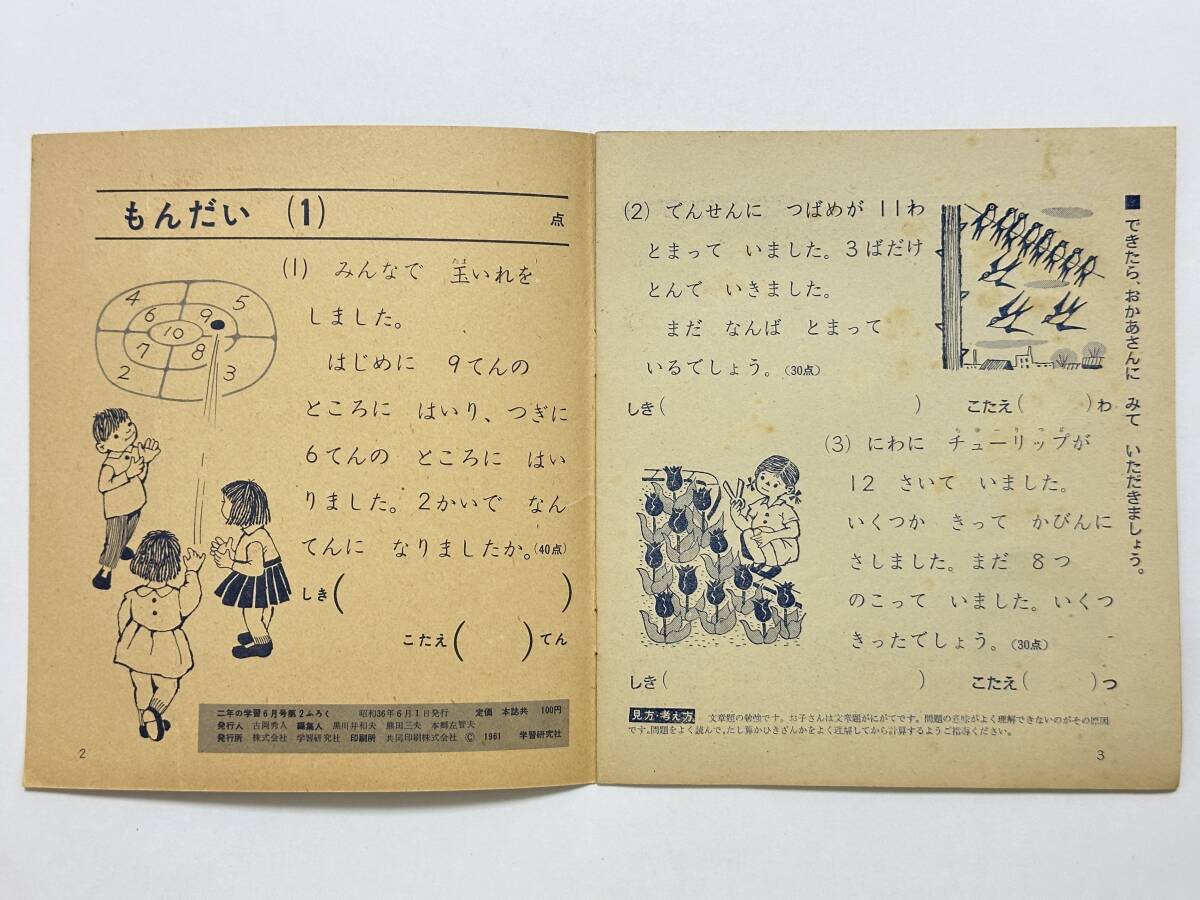 もんだい (1)
点
4
5
6
9
10
7
8
2
3
(1) みんなで 玉いれを
たま
しました。
はじめに 9てんの
ところに はいり、つぎに
6てんの ところに はい
りました。2かいで なん
てんに なりましたか。(40点)
しき( )
こたえ( )てん
二年の学習6月号第2ふろく 昭和36年6月1日発行 定価 本誌共 100円
発行人 古岡秀人 編集人 黒川井和夫 熊田三夫 本郷左智夫
発行所 株式会社 学習研究社 印刷所 共同印刷株式会社 © 1961 学習研究社
2
■できたら、おかあさんに みて いただきましょう。
(2) でんせんに つばめが 11わ
とまって いました。3ばだけ
とんで いきました。
まだ なんば とまって
いるでしょう。(30点)
しき( ) こたえ( )わ
(3) にわに チューリップが
ちゅーりっぷ
12 さいて いました。
いくつか きって かびんに
さしました。まだ 8つ
のこって いました。いくつ
きったでしょう。(30点)
しき( ) こたえ( )つ
見方・考え方 文章題の勉強です。お子さんは文章題がにがてです。問題の意味がよく理解できないのがその原因
です。問題をよく読んで、たし算かひきざんかをよく理解してから計算するようご指導ください。
3